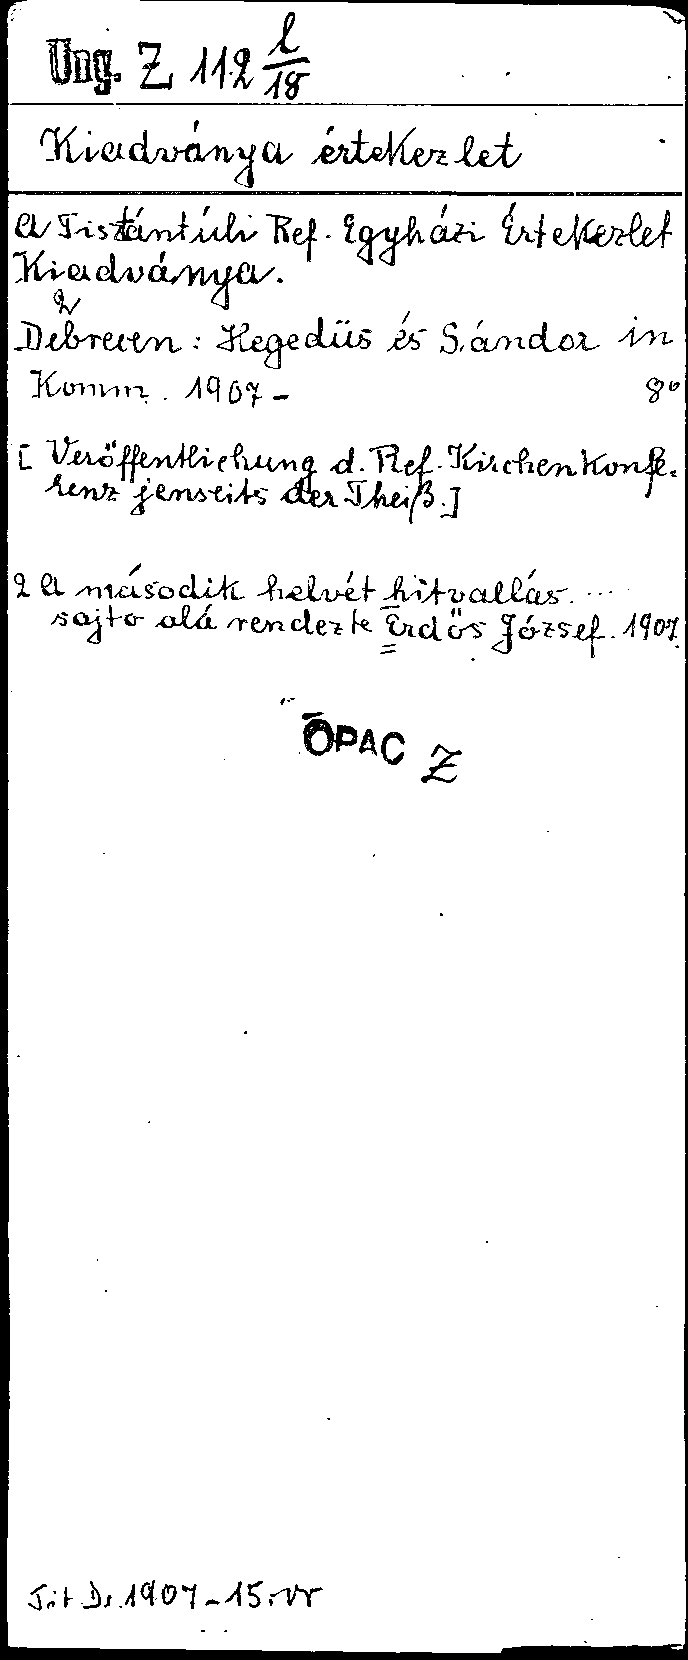 Ung. Z 112 l/18
Kiadványa értekezlet
A Tistántúli Ref. Egyházi Értekezlet
Kiadványa.
2
Debrecen: Hegedüs és Sándor in
Komm. 1907- 8°
[Veröffentlichung d. Ref. Kirchenkonfe-
renz jenseits der Theiß.]
2 A második helvét hitvallás. ...
sajto alá rendezte Erdős József. 1907.
ŌPAC Z
Tit Dr. 1907-15.